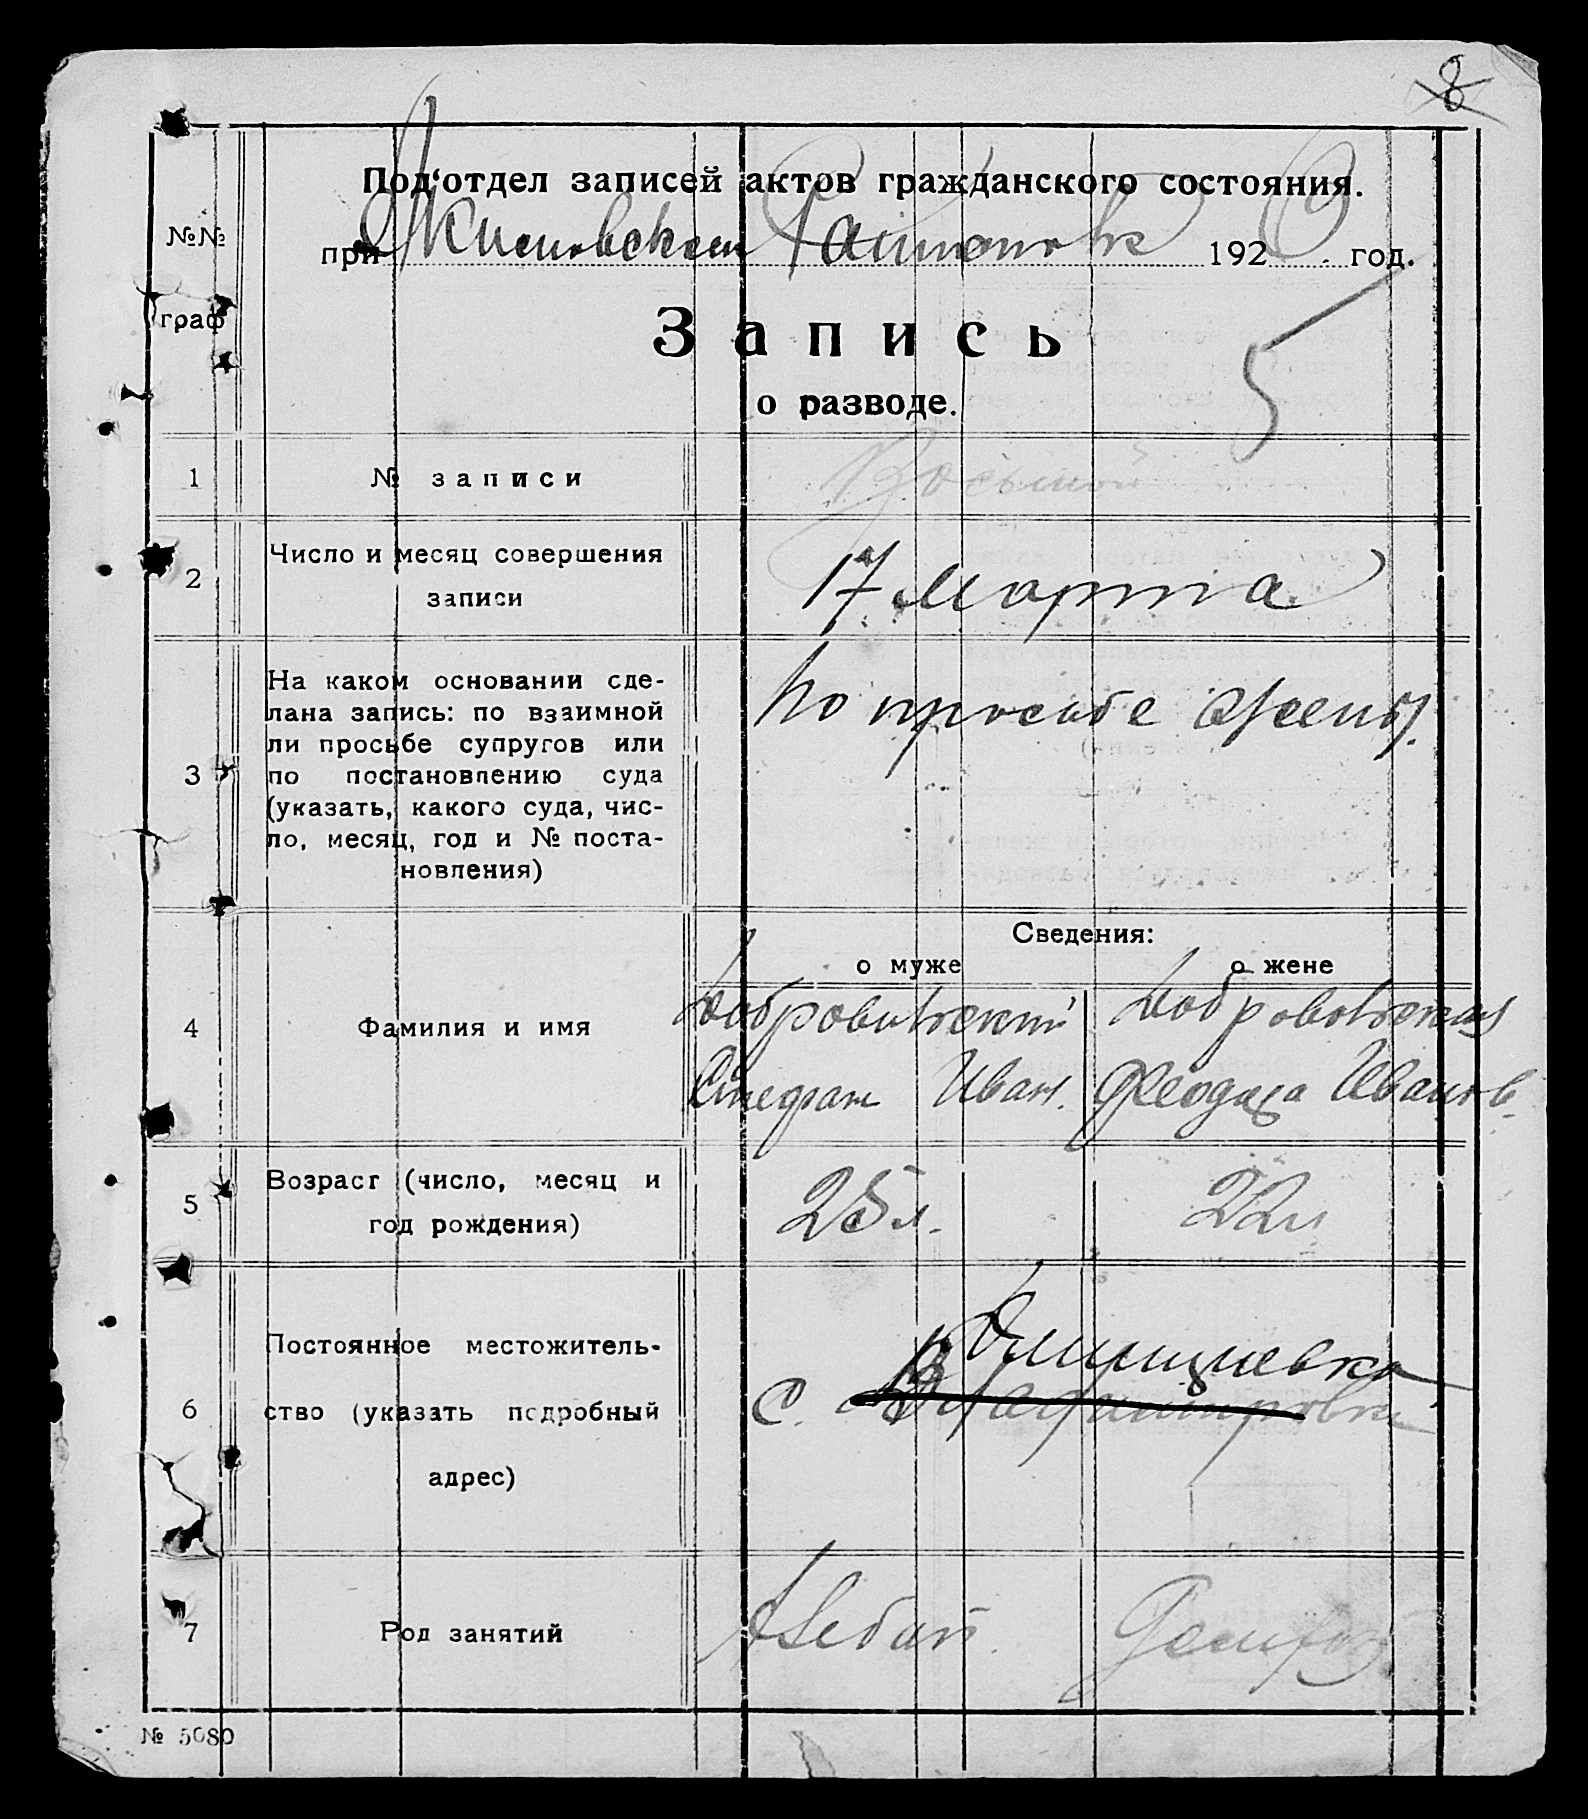 8
Под'отдел записей актов гражданского состояния.
№№
граф
при 192 год.
Запись
5
о разводе.
1 № записи Восьмой
2 Число и месяц совершения
записи
17 марта
3 На каком основании сде-
лана запись: по взаимной
ли просьбе супругов или
по постановлению суда
(указать, какого суда, чис-
ло, месяц, год и № поста-
новления)
По просьбе жены.
Сведения:
о муже о жене
4 Фамилия и имя
Добровольская
Стефан Иван. Иванов.
5 Возраст (число, месяц и
год рождения)
25 л. 22 л
6 Постоянное местожитель-
ство (указать подробный
адрес)
с.
7 Род занятий
Хлебоп.
№ 5080